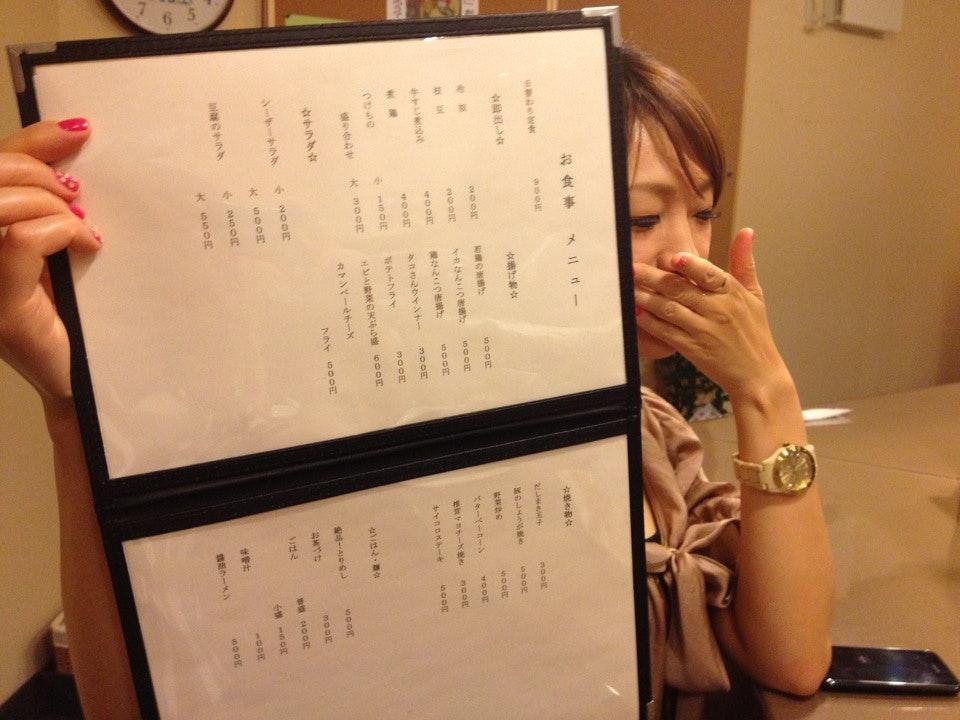 お食事 メニュー
日替わり定食 900円
☆即出し☆
冷奴 200円
枝豆 200円
牛すじ煮込み 400円
煮鶏 400円
つけもの 小 150円
盛り合わせ 大 300円
☆サラダ☆
シーザーサラダ 小 200円
大 500円
豆腐のサラダ 小 250円
大 550円
☆揚げ物☆
若鶏の唐揚げ 500円
イカなんこつ唐揚げ 500円
鶏なんこつ唐揚げ 500円
タコさんウインナー 300円
ポテトフライ 300円
エビと野菜の天ぷら盛 600円
カマンベールチーズ
フライ 500円
☆焼き物☆
だしまき玉子 300円
豚のしょうが焼き 500円
野菜炒め 500円
バターベーコーン 400円
椎茸マヨチーズ焼き 300円
サイコロステーキ 500円
☆ごはん・麺☆
絶品!とりめし 500円
お茶づけ 300円
ごはん 普盛 200円
小盛 150円
味噌汁 100円
醤油ラーメン 500円
7 6 5